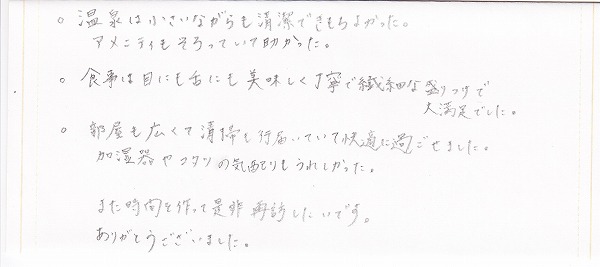 。温泉は小さいながらも清潔できもちよかった。
アメニティもそろっていて助かった。
。食事は目にも舌にも美味しく丁寧で繊細な盛りつけで
大満足でした。
。部屋も広くて清掃も行届いていて快適に過ごせました。
加湿器やコタツの気配りもうれしかった。
また時間を作って是非再訪したいです。
ありがとうございました。